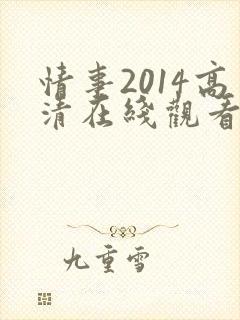 情事2014高
清在綫觀看
九重雪